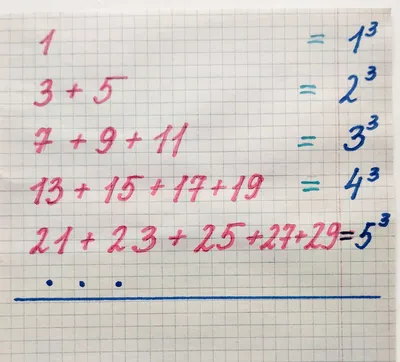 1 = 1³
3 + 5 = 2³
7 + 9 + 11 = 3³
13 + 15 + 17 + 19 = 4³
21 + 23 + 25 + 27 + 29 = 5³
. . .